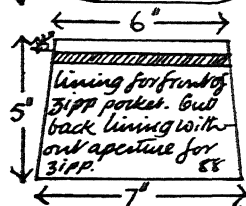 6"
5"
lining for front of
zipp pocket. Cut
back lining with-
out aperture for
zipp. 88
7"